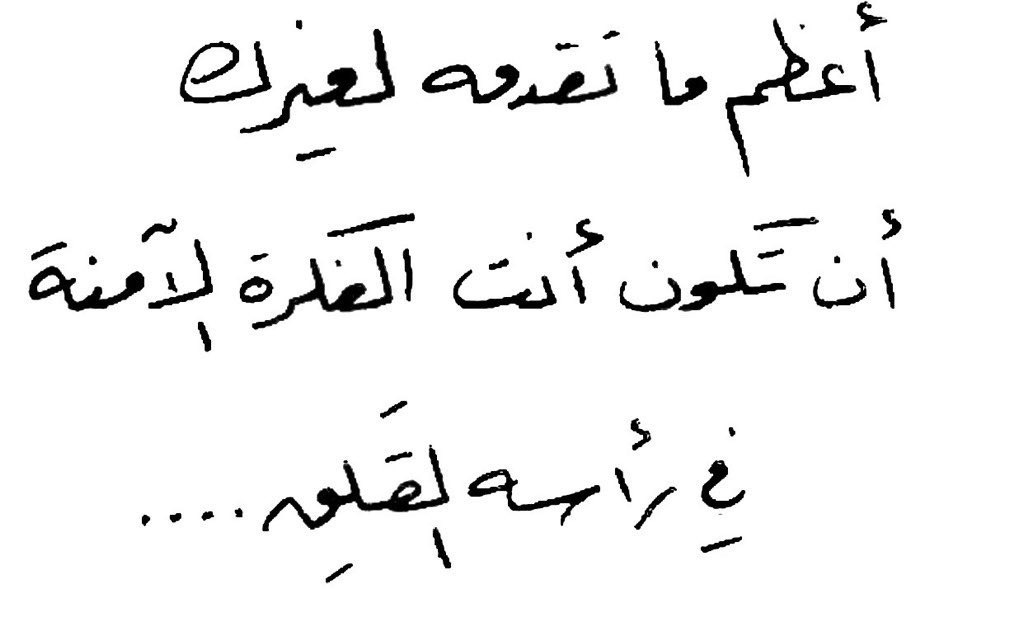 أعظم ما تقدمه لغيرك
أن تكون أنت الفكرة الآمنة
في رأسه القلِق ....